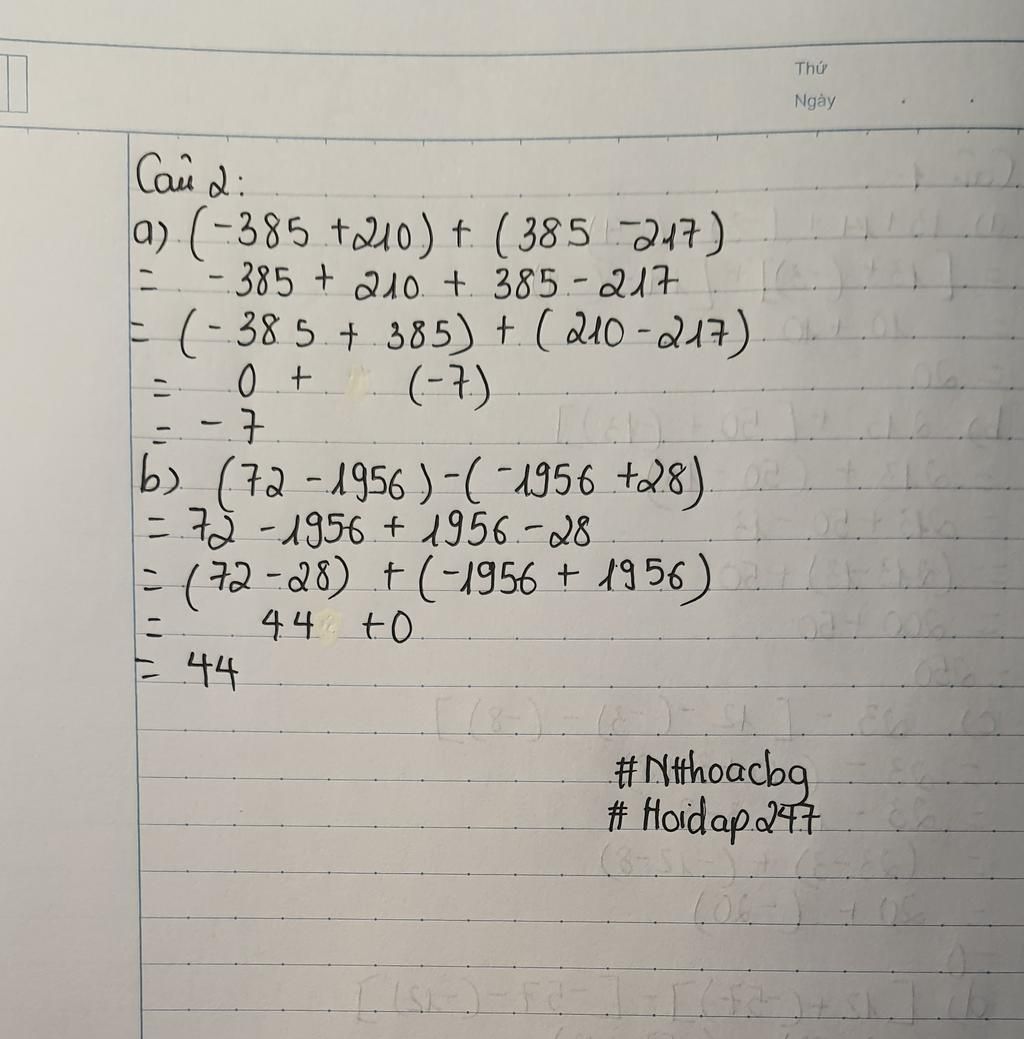 Thứ
Ngày
Câu 2:
a) (-385 +210) + (385 -217)
= -385 + 210 + 385 - 217
= (-385 + 385) + (210 - 217)
= 0 + (-7)
= -7
b) (72 -1956) - (-1956 +28)
= 72 -1956 + 1956 - 28
= (72 - 28) + (-1956 + 1956)
= 44 +0
= 44
#Ntthoacbg
# Hoidap247